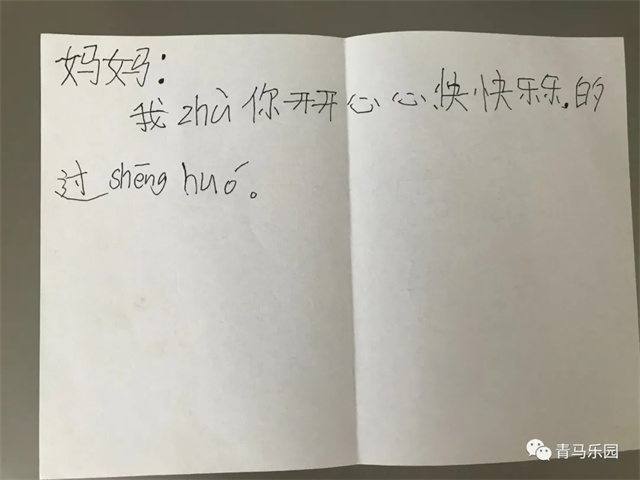 妈妈：
我zhù你开开心心快快乐乐.的
过shēng huó。
青马乐园